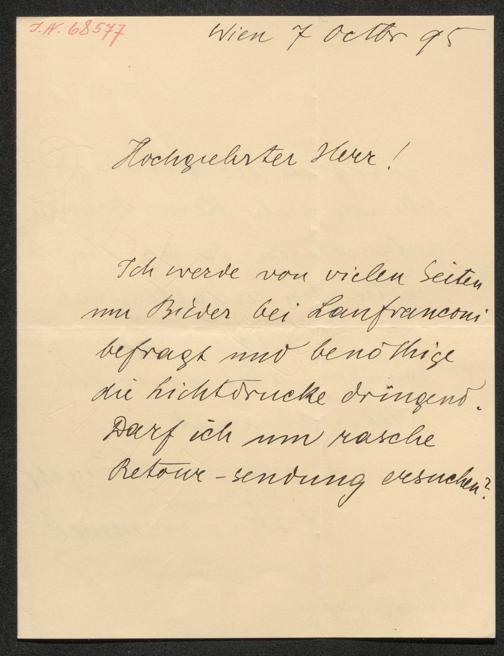 I.N. 68577
Wien 7 Octbr 95
Hochgeehrter Herr!
Ich werde von vielen Seiten
um Bilder bei Lanfranconi
befragt und benöthige
die Lichtdrucke dringend.
Darf ich um rasche
Retour-sendung ersuchen?